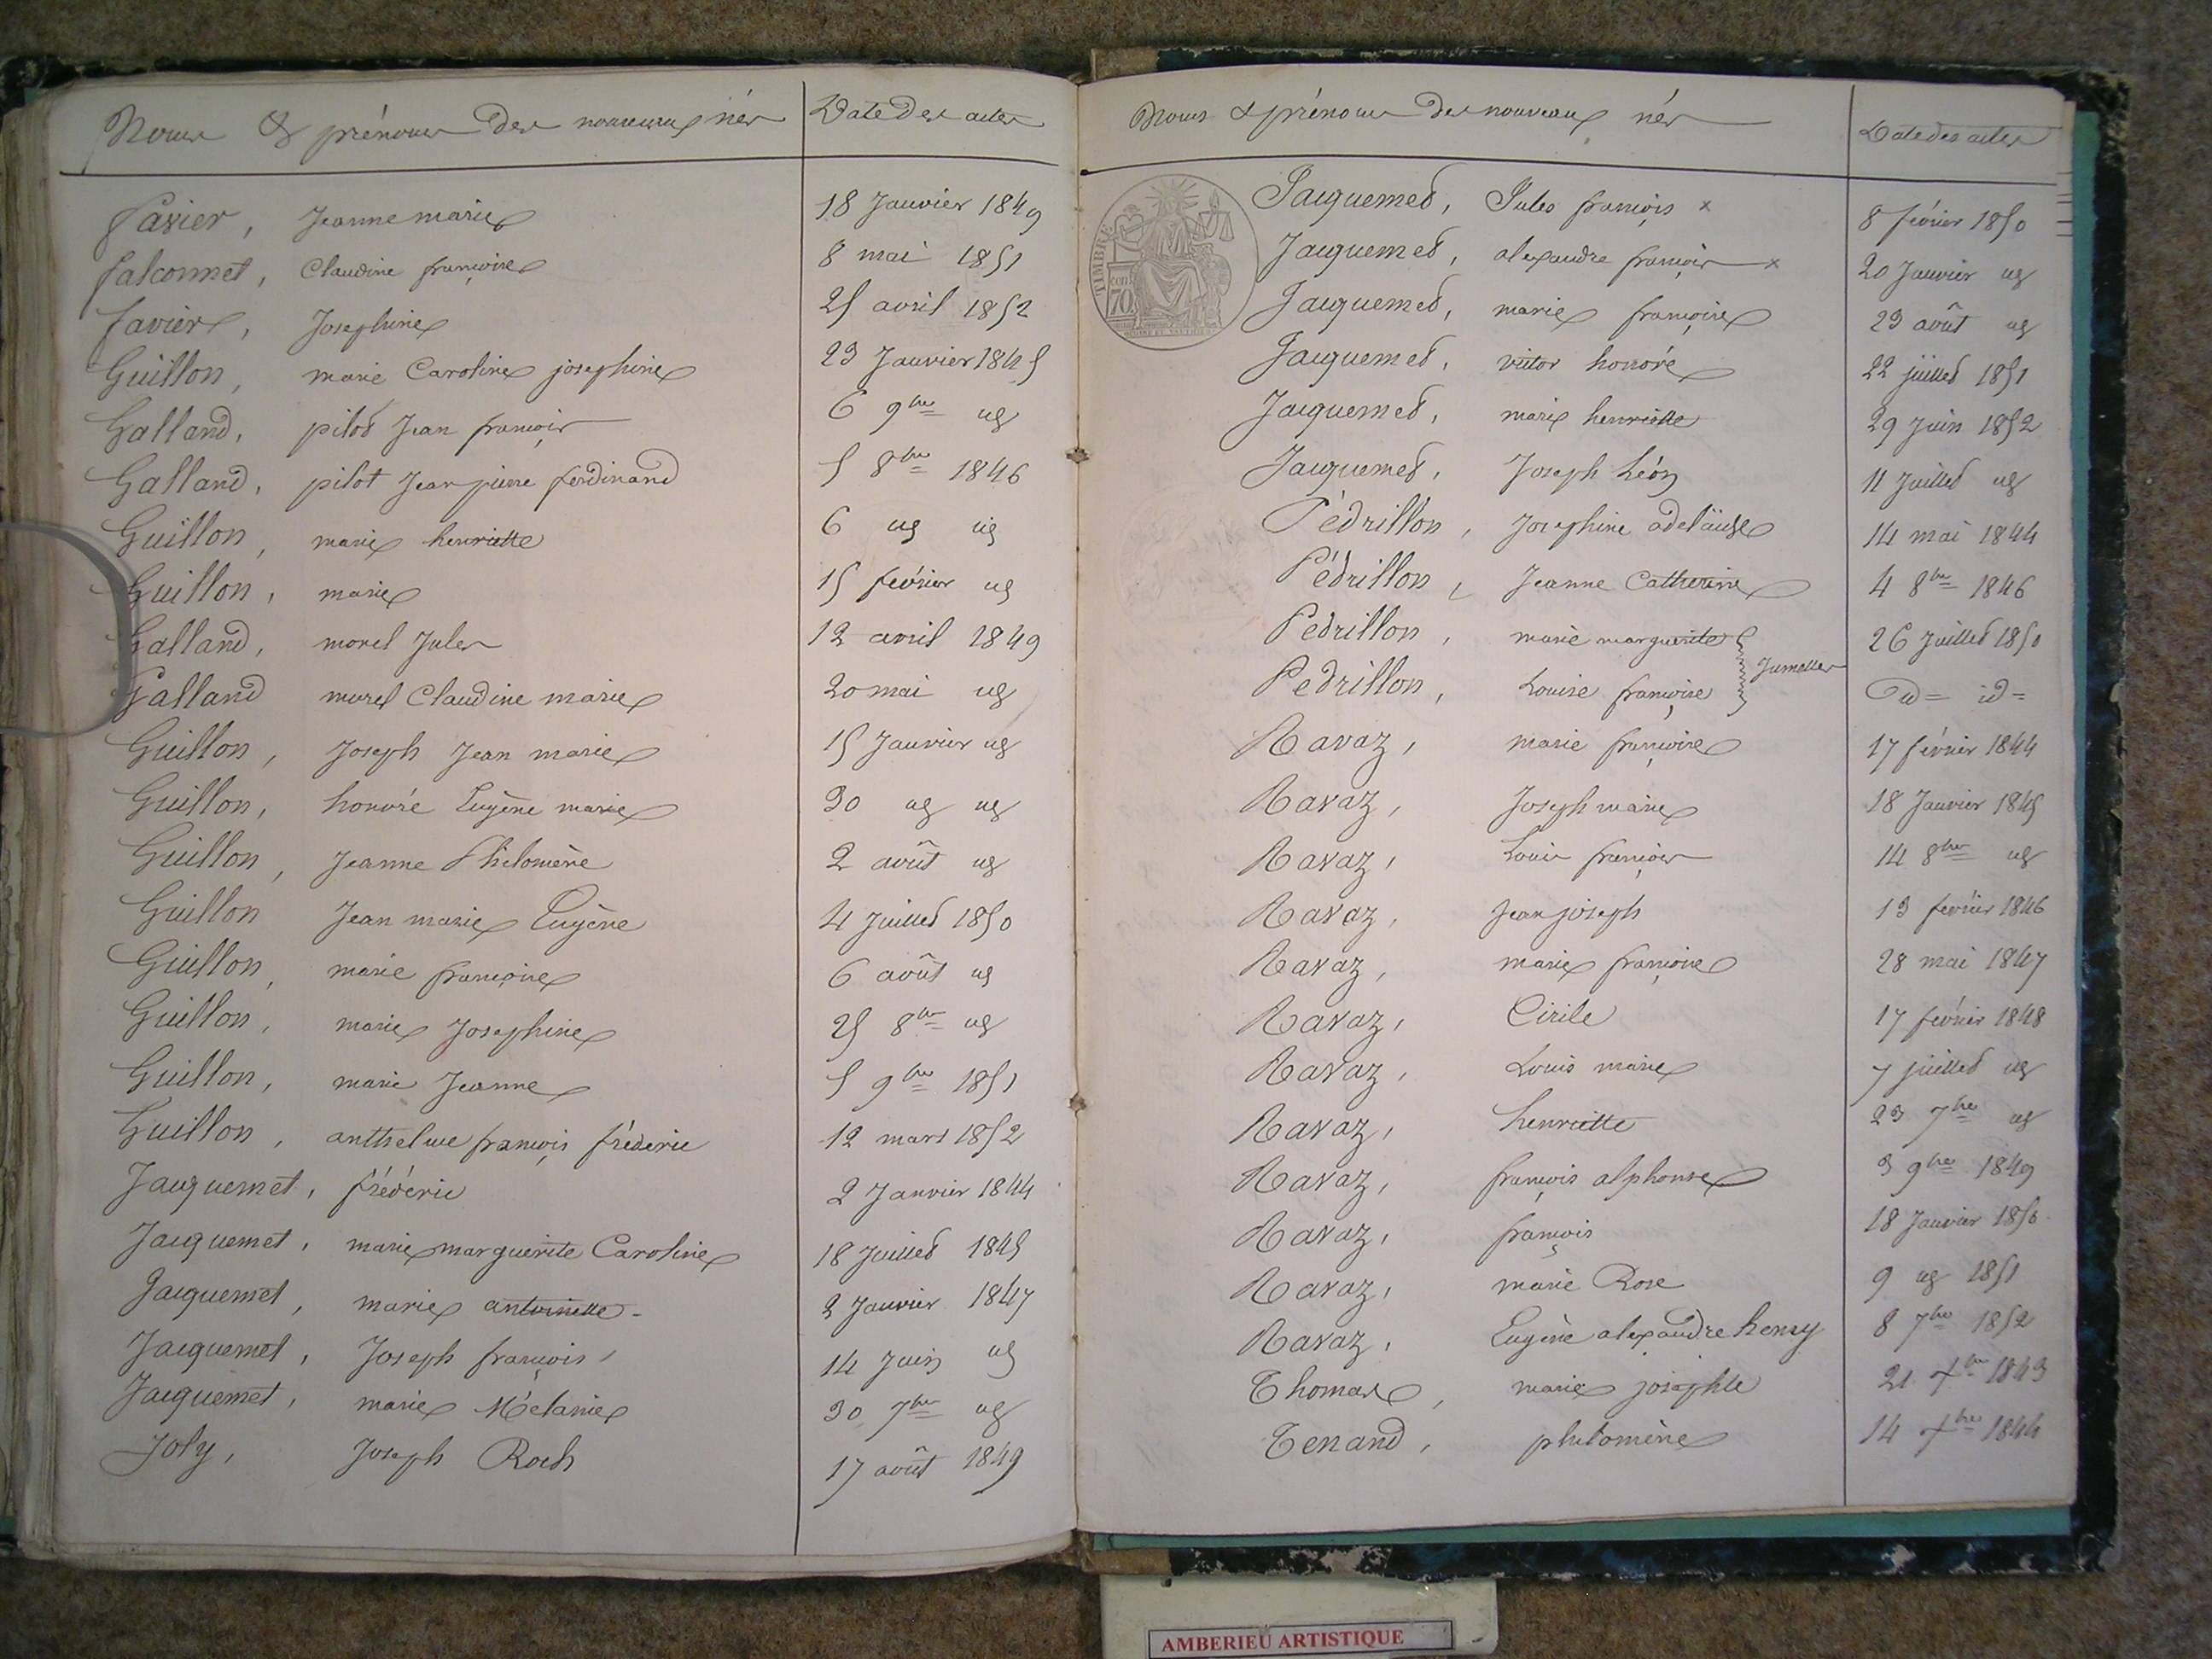 Noms & prénoms des nouveaux nés Date des actes
favier, Jeanne marie 18 Janvier 1849
falconnet, Claudine françoise 8 mai 1851
favier, Josephine 25 avril 1852
Guillon, marie Caroline josephine 23 Janvier 1845
Galland, pilot Jean françois 6 9bre id
Galland, pilot Jean pierre ferdinand 5 8bre 1846
Guillon, marie henriette 6 id id
Guillon, marie 15 février id
Galland, morel Jules 12 avril 1849
Galland morel Claudine marie 20 mai id
Guillon, Joseph Jean marie 15 Janvier id
Guillon, honoré Eugène marie 30 id id
Guillon, Jeanne Philomène 2 août id
Guillon Jean marie Eugène 4 Juillet 1850
Guillon, marie françoise 6 août id
Guillon, marie Josephine 25 8bre id
Guillon, marie Jeanne 5 9bre 1851
Guillon, anthelme françois fréderic 12 mars 1852
Jacquemet, fréderic 2 Janvier 1844
Jacquemet, marie marguerite Caroline 18 Juillet 1845
Jacquemet, marie antoinette 2 Janvier 1847
Jacquemet, Joseph françois, 14 Juin id
Jacquemet, marie Mélanie 30 7bre id
Joly, Joseph Roch 17 août 1849
Noms & prénoms des nouveaux nés Date des actes
TIMBRE
70
Jacquemet, Jules françois x 8 février 1850
Jacquemet, alexandre françois x 20 Janvier id
Jacquemet, marie françoise 23 août id
Jacquemet, victor honoré 22 juillet 1851
Jacquemet, marie henriette 29 Juin 1852
Jacquemet, Joseph Léon 11 Juillet id
Pédrillon, Josephine adelaïde 14 mai 1844
Pédrillon, Jeanne Catherine 4 8bre 1846
Pedrillon, marie marguerite 26 Juillet 1850
Jumelles
Pedrillon, Louise françoise id= id=
Ravaz, marie françoise 17 février 1844
Ravaz, Joseph marie 18 Janvier 1845
Ravaz, Louis françois 14 8bre id
Ravaz, Jean joseph 13 février 1846
Ravaz, marie françoise 28 mai 1847
Ravaz, Cirile 17 février 1848
Ravaz, Louis marie 7 juillet id
Ravaz, henriette 23 7bre id
Ravaz, françois alphonse 3 9bre 1849
Ravaz, françois 18 Janvier 1850
Ravaz, marie Rose 9 id 1851
Ravaz, Eugène alexandre henry 8 7bre 1852
Thomas, marie josephte 21 Xbre 1843
Tenand, philomène 14 Xbre 1844
AMBERIEU ARTISTIQUE